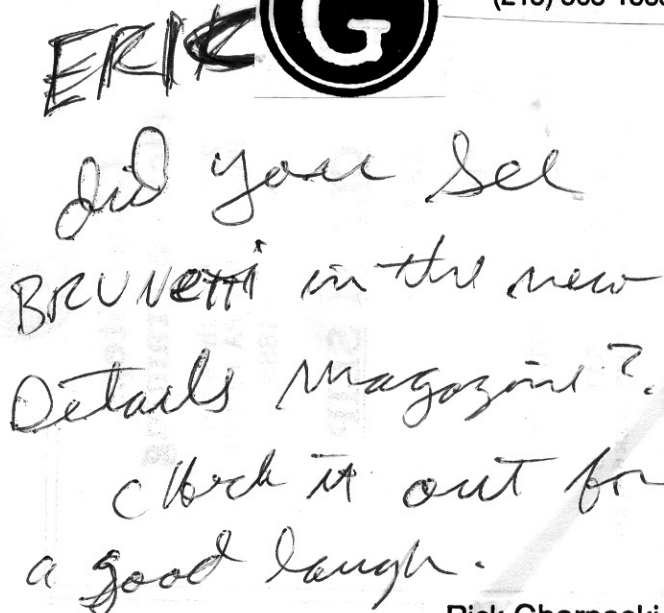 ERIC
G
did you see
BRUNETTI in the new
Details Magazine?
Check it out for
a good laugh.